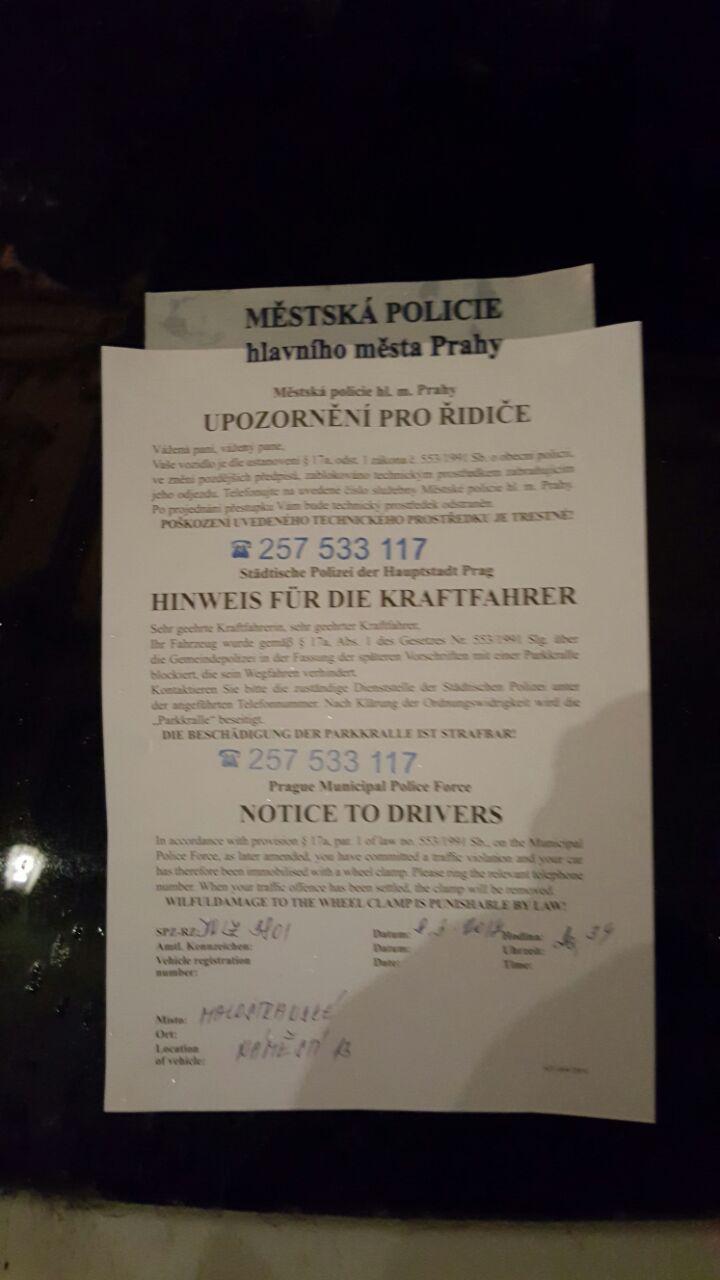 MĚSTSKÁ POLICIE
hlavního města Prahy
Městská policie hl. m. Prahy
UPOZORNĚNÍ PRO ŘIDIČE
Vážená paní, vážený pane,
Vaše vozidlo je dle ustanovení § 17a, odst. 1 zákona č. 553/1991 Sb. o obecní policii,
ve znění pozdějších předpisů, zablokováno technickým prostředkem zabraňujícím
jeho odjezdu. Telefonujte na uvedené číslo služebny Městské policie hl. m. Prahy.
Po projednání přestupku Vám bude technický prostředek odstraněn.
POŠKOZENÍ UVEDENÉHO TECHNICKÉHO PROSTŘEDKU JE TRESTNÉ!
☎ 257 533 117
Städtische Polizei der Hauptstadt Prag
HINWEIS FÜR DIE KRAFTFAHRER
Sehr geehrte Kraftfahrerin, sehr geehrter Kraftfahrer,
Ihr Fahrzeug wurde gemäß § 17a, Abs. 1 des Gesetzes Nr. 553/1991 Slg. über
die Gemeindepolizei in der Fassung der späteren Vorschriften mit einer Parkkralle
blockiert, die sein Wegfahren verhindert.
Kontaktieren Sie bitte die zuständige Dienststelle der Städtischen Polizei unter
der angeführten Telefonnummer. Nach Klärung der Ordnungswidrigkeit wird die
„Parkkralle“ beseitigt.
DIE BESCHÄDIGUNG DER PARKKRALLE IST STRAFBAR!
☎ 257 533 117
Prague Municipal Police Force
NOTICE TO DRIVERS
In accordance with provision § 17a, par. 1 of law no. 553/1991 Sb., on the Municipal
Police Force, as later amended, you have committed a traffic violation and your car
has therefore been immobilised with a wheel clamp. Please ring the relevant telephone
number. When your traffic offence has been settled, the clamp will be removed.
WILFULDAMAGE TO THE WHEEL CLAMP IS PUNISHABLE BY LAW!
SPZ-RZ: Datum: Hodina: 39
Amtl. Kennzeichen: Datum: Uhrzeit:
Vehicle registration Date: Time:
number:
Místo: MALOSTRANSKÉ
Ort:
Location NÁMĚSTÍ
of vehicle: